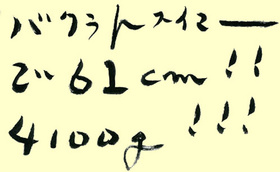 バクラトスイマー
で61cm!!
4100g!!!